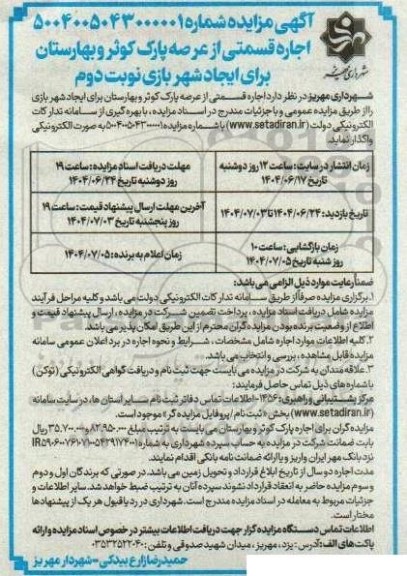 آگهی مزایده شماره ۵۰۰۴۰۰۵۰۴۳۰۰۰۰۰۱
اجاره قسمتی از عرصه پارک کوثر و بهارستان
برای ایجاد شهر بازی نوبت دوم
شهرداری مهریز
شهرداری مهریز در نظر دارد اجاره قسمتی از عرصه پارک کوثر و بهارستان برای ایجاد شهر بازی
را از طریق مزایده عمومی و با جزئیات مندرج در اسناد مزایده، با بهره گیری از سامانه تدارکات
الکترونیکی دولت (www.setadiran.ir) با شماره مزایده ۵۰۰۴۰۰۵۰۴۳۰۰۰۰۰۱ به صورت الکترونیکی
واگذار نماید.
زمان انتشار در سایت: ساعت ۱۲ روز دوشنبه
تاریخ ۱۴۰۴/۰۶/۱۷
مهلت دریافت اسناد مزایده: ساعت ۱۹
روز دوشنبه تاریخ ۱۴۰۴/۰۶/۲۴
تاریخ بازدید: ۱۴۰۴/۰۶/۲۴ تا ۱۴۰۴/۰۷/۰۳
آخرین مهلت ارسال پیشنهاد قیمت: ساعت ۱۹
روز پنجشنبه تاریخ ۱۴۰۴/۰۷/۰۳
زمان بازگشایی: ساعت ۱۰
روز شنبه تاریخ ۱۴۰۴/۰۷/۰۵
زمان اعلام به برنده: ۱۴۰۴/۰۷/۰۵
ضمناً رعایت موارد ذیل الزامی می باشد:
۱. برگزاری مزایده صرفاً از طریق سامانه تدارکات الکترونیکی دولت می باشد و کلیه مراحل فرآیند
مزایده شامل دریافت اسناد مزایده، پرداخت تضمین شرکت در مزایده، ارسال پیشنهاد قیمت و
اطلاع از وضعیت برنده بودن مزایده گران محترم از این طریق امکان پذیر می باشد.
۲. کلیه اطلاعات موارد اجاره شامل مشخصات، شرایط و نحوه اجاره در برد اعلان عمومی سامانه
مزایده قابل مشاهده، بررسی و انتخاب می باشد.
۳. علاقه مندان به شرکت در مزایده می بایست جهت ثبت نام و دریافت گواهی الکترونیکی (توکن)
با شماره های ذیل تماس حاصل فرمایند:
مرکز پشتیبانی و راهبری: ۱۴۵۶ - اطلاعات تماس دفاتر ثبت نام سایر استان ها، در سایت سامانه
(www.setadiran.ir) بخش «ثبت نام / پروفایل مزایده گر» موجود است.
مزایده گران برای اجاره پارک کوثر و بهارستان می بایست به ترتیب مبلغ ۸۲،۹۵۰،۰۰۰ و ۳۵،۷۰۰،۰۰۰ ریال
بابت ضمانت شرکت در مزایده به حساب سپرده شهرداری به شماره
نزد بانک مهر ایران واریز و یا ارائه ضمانت نامه بانکی اقدام نمایند.
مدت اجاره دو سال از تاریخ ابلاغ قرارداد و تحویل زمین می باشد. در صورتی که برندگان اول و دوم
و سوم مزایده حاضر به انعقاد قرارداد نشوند سپرده آنان به ترتیب ضبط خواهد شد. سایر اطلاعات و
جزئیات مربوط به معامله در اسناد مزایده مندرج است. شهرداری در رد یا قبول هر یک از پیشنهادها
مختار است.
اطلاعات تماس دستگاه مزایده گزار جهت دریافت اطلاعات بیشتر در خصوص اسناد مزایده و ارائه
پاکت های الف: آدرس: یزد، مهریز، میدان شهید صدوقی و تلفن: ۰۳۵۳۲۵۲۲۰۴۰
حمیدرضا زارع بیدکی - شهردار مهریز